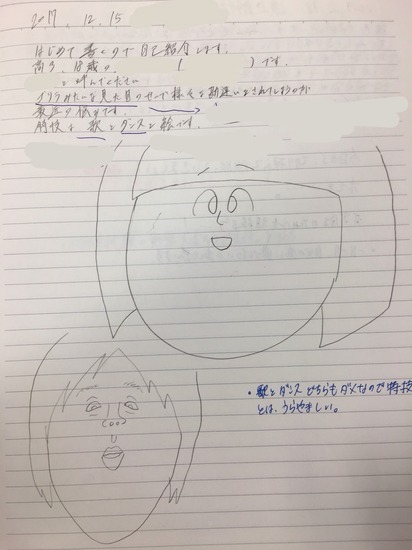 2017. 12. 15
はじめて書くので自己紹介します。
高3、18歳の、 ( ) です。
と呼んでください
ゴリラみたいな見た目のせいで様々な勘違いをされてしまうのが
です。
特技は 歌とダンスと絵です。
・歌とダンスどちらもダメなので特技
とは、うらやましい。